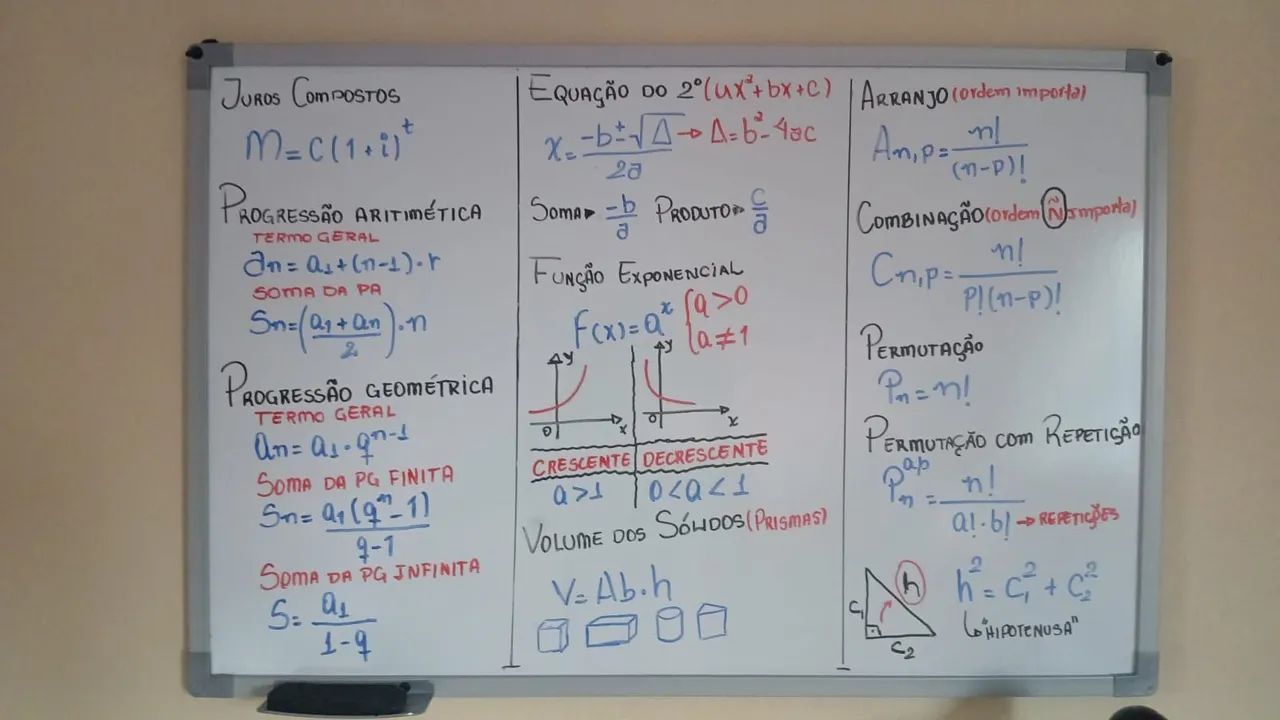 JUROS COMPOSTOS
M=C(1+i)^t
PROGRESSÃO ARITIMÉTICA
TERMO GERAL
an=a1+(n-1)·r
SOMA DA PA
Sn=(a1+an/2)·n
PROGRESSÃO GEOMÉTRICA
TERMO GERAL
an=a1·q^n-1
SOMA DA PG FINITA
Sn=a1(q^n-1)/q-1
SOMA DA PG INFINITA
S=a1/1-q
EQUAÇÃO DO 2º(ax²+bx+c)
x=-b±√Δ/2a → Δ=b²-4ac
SOMA▸ -b/a PRODUTO▸ c/a
FUNÇÃO EXPONENCIAL
F(x)=a^x {a>0
a≠1
y y
0 x 0 x
CRESCENTE DECRESCENTE
a>1 0<a<1
VOLUME DOS SÓLIDOS(PRISMAS)
V=Ab·h
ARRANJO(ordem importa)
An,p=n!/(n-p)!
COMBINAÇÃO(ordem Ñ importa)
Cn,p=n!/p!(n-p)!
PERMUTAÇÃO
Pn=n!
PERMUTAÇÃO COM REPETIÇÃO
Pn^a,b=n!/a!·b! → REPETIÇÕES
h
C1
C2
h²=C1²+C2²
↳"HIPOTENUSA"